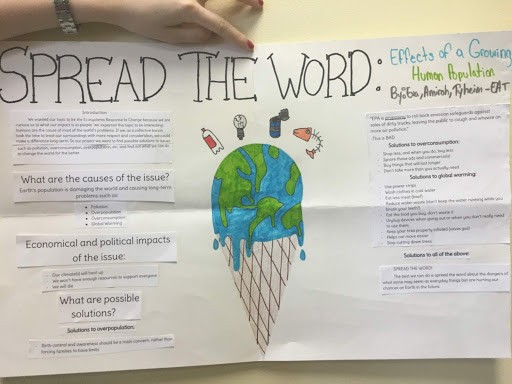 SPREAD THE WORD:
Effects of a Growing
Human Population
By: Eva, Amirah, Tyheim - EAT
Introduction
We wanted our topic to be the Ecosystems Response to Change because we are
curious as to what our impact is as people. We expected this topic to be interesting.
Humans are the cause of most of the world's problems. If we, as a collective bunch,
took the time to treat our surroundings with more respect and consideration, we could
make a difference long term. In our project we want to find possible solutions to issues
such as pollution, overconsumption, and find out what we can do
to change the world for the better.
What are the causes of the issue?
Earth's population is damaging the world and causing long-term
problems such as:
Pollution
Overpopulation
Overconsumption
Global Warming
Economical and political impacts
of the issue:
Our climate(s) will heat up
We won't have enough resources to support everyone
We will die
What are possible
solutions?
Solutions to overpopulation:
Birth control and awareness should be a main concern, rather than
forcing families to have
"EPA is proposing to roll back emission safeguards against
miles of dirty trucks, leaving the public to cough and wheeze on
more air pollution"
This is BAD.
Solutions to overconsumption:
Shop less, and when you do, buy less
Ignore those ads and commercials!
Buy things that will last longer
Don't take more than you actually need
Solutions to global warming:
Use power strips
Wash clothes in cold water
Eat less meat (beef)
Reduce water waste (don't keep the water running while you
brush your teeth!)
Eat the food you buy, don't waste it
Unplug devices when going out or when you don't really need
to use them
Keep your tires properly inflated (saves gas)
Stop cutting down trees
Solutions to all of the above:
SPREAD THE WORD!
The best we can do is spread the word about the dangers of
what some may seem as everyday things but are hurting our
chances on Earth in the future.